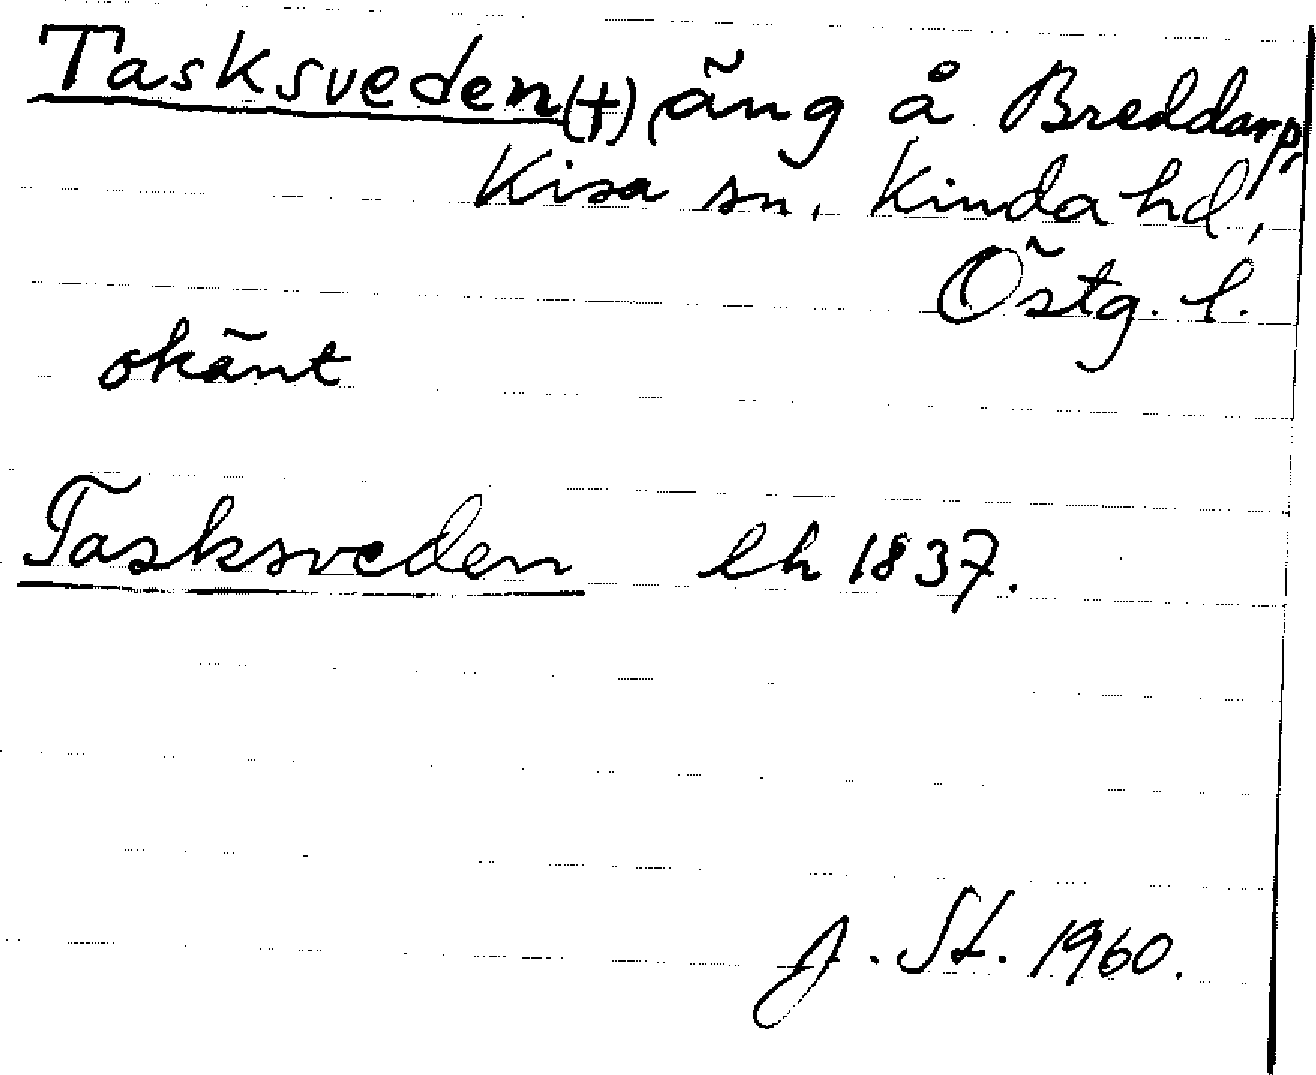 Tasksveden (†), äng å Breddarp,
Kisa sn, Kinda hd,
Östg. l.
okänt
Tasksveden lh 1837.
J. St. 1960.